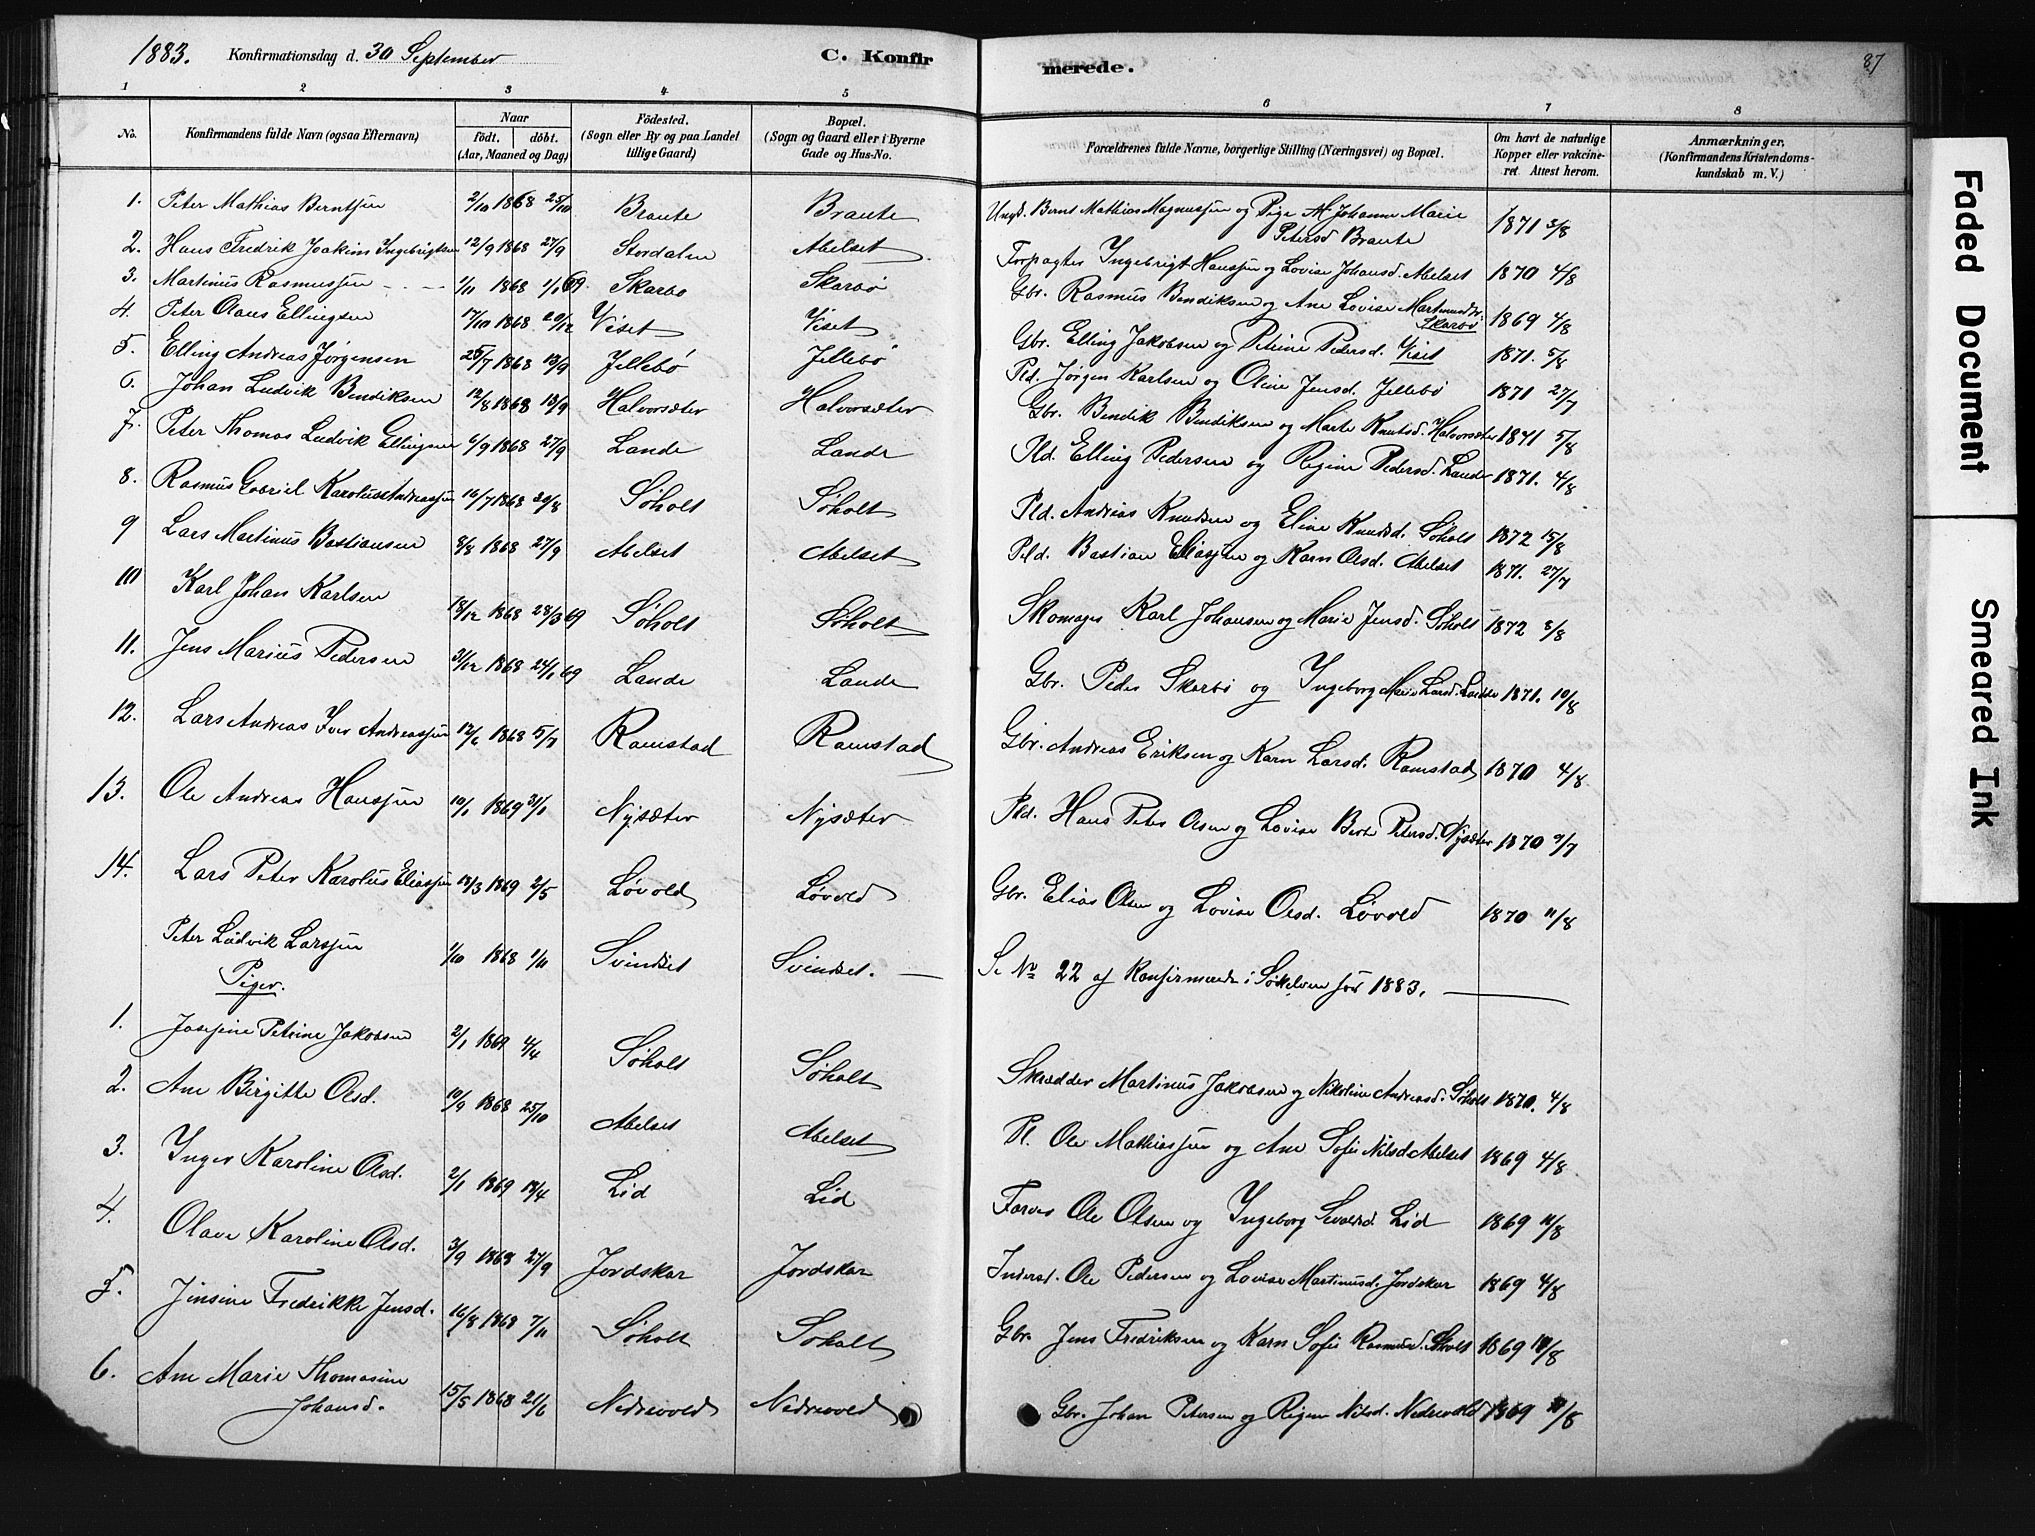 1883. Konfirmationsdag d. 30 September C. Konfirmerede. 87
1 2 3 4 5 6 7 8
No. Konfirmandens fulde Navn (ogsaa Efternavn) Naar født. døbt. (Aar, Maaned og Dag) Fødested. (Sogn eller By og paa Landet tillige Gaard) Bopæl. (Sogn og Gaard eller i Byerne Gade og Hus-No. Forældrenes fulde Navne, borgerlige Stilling (Næringsvei) og Bopæl. Om havt de naturlige Kopper eller vakcineret. Attest herom. Anmærkninger. (Konfirmandens Kristendomskundskab m. V.)
1. Peter Mathias Berntsen 2/10 1868 25/10 Braute Braute Ungk. Bernt Mathias Magnussen og Pige Johanne Marie Petersd Braute 1871 3/8
2. Hans Fredrik Joakim Ingebrigtsen 12/9 1868 27/9 Stordalen Abelset Forpagter Ingebrigt Hanssen og Lovise Johansd. Abelset 1870 4/8
3. Martinus Rasmussen 1/11 1868 1/1 69. Skarbø Skarbø Gbr. Rasmus Bendiksen og Ane Lovise Martinusdr. Skarbø 1869 4/8
4. Peter Olaus Ellingsen 17/10 1868 20/12 Viset Viset Gbr. Elling Jakobsen og Petrine Pedersd. Viset 1871. 5/8
5. Elling Andreas Jørgensen 25/7 1868 13/9 Jillebø Jillebø Pld. Jørgen Karlsen og Oline Jensd. Jillebø 1871 27/7
6. Johan Ludvik Bendiksen 12/8 1868 13/9 Halvorsæter Halvorsæter Gbr. Bendik Bendiksen og Marte Knutsd. Halvorsæter 1871 5/8
7. Peter Thomas Ludvik Ellingsen 6/9 1868 27/9 Lande Lande Pld. Elling Pedersen og Regine Pedersd. Lande 1871. 4/8
8. Rasmus Gabriel Karolus Andreassen 16/7 1868 30/8 Søholt Søholt Pld. Andreas Knudsen og Eline Knudsd. Søholt 1872 15/8
9 Lars Martinus Bastiansen 8/8 1868 27/9 Abelset Abelset Pld. Bastian Eliassen og Karn Olsd. Abelset 1871. 27/7
10 Karl Johan Karlsen 18/12 1868 28/3 69 Søholt Søholt Skomager Karl Johansen og Marie Jensd. Søholt 1872 8/8
11. Jens Marius Pedersen 31/12 1868 24/1 69 Lande Lande Gbr. Peder Skarbø og Ingeborg Marie Larsd. Lande 1871. 10/8
12. Lars Andreas Iver Andreassen 12/6 1868 5/7 Ramstad Ramstad Gbr. Andreas Eriksen og Karn Larsd. Ramstad 1870 4/8
13. Ole Andreas Hanssen 10/1 1869 31/1 Nysæter Nysæter Pld. Hans Peter Olsen og Lovise Berte Petersd. Nysæter 1870 9/7
14. Lars Peter Karolus Eliassen 13/3 1869 2/5 Løvold Løvold Gbr. Elias Olsen og Lovise Olsd. Løvold 1870 11/8
Peter Ludvik Larssen 1/10 1868 1/11 Svindset Svindset. Se No 22 af Konfirmerede i Søkelven for 1883.
Piger.
1. Josefine Petrine Jakobsen 2/1 1869 4/4 Søholt Søholt Skrædder Martinus Jakobsen og Nikoline Andreasd. Søholt 1870. 4/8
2. Ane Birgitte Olsd. 10/9 1868 25/10 Abelset Abelset Pl. Ole Mathiassen og Ane Sofie Nilsd Abelset 1869 4/8
3. Inger Karoline Olsd. 2/1 1869 18/4 Lid Lid Ole Olsen og Ingeborg Sevaldsd. Lid 1869 11/8
4. Olave Karoline Olsd. 3/9 1868 27/9 Jordskar Jordskar Inderst. Ole Pedersen og Lovise Martinusd. Jordskar 1869 4/8
5. Jensine Fredrikke Jensd. 16/8 1868 7/11 Søholt Søholt Gbr. Jens Fredriksen og Karn Sofie Rasmusd. Søholt 1869 18/8
6. Ane Marie Thomasine Johansd. 15/5 1868 21/6 Nedrevold Nedrevold Gbr. Johan Petersen og Regine Nilsd. Nedrevold 1869 11/8
Faded Document
Smeared Ink